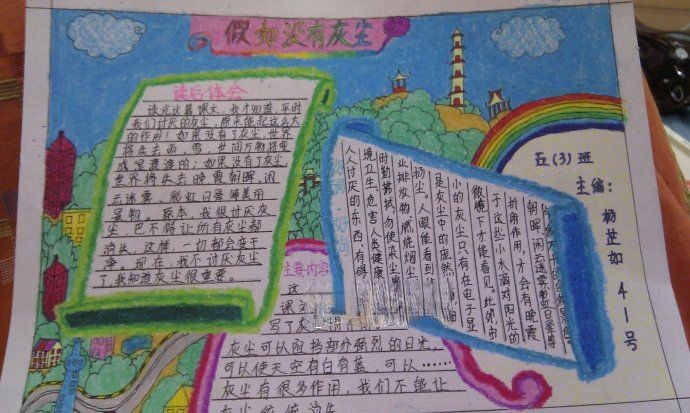 假如没有灰尘
读后体会
读完这篇课文，我才知道，平时
我们讨厌的灰尘，原来能起这么大
的作用！如果没有了灰尘，世界
将失去雨、雪，世间万物将变
成
如果没有了灰尘，
世界将失去晚霞朝晖、闲
云迷雾、彩虹日晕等美丽
景物。原本，我很讨厌灰
尘，巴不得让所有灰尘都
消失。这样，一切都会变干
净。现在，我不讨厌灰尘
了，我知道灰尘很重要。
人人讨厌的东西，有碍
境卫生，危害人类健康
时勤拂拭，勿使染尘埃
业排放物、燃烧烟尘
扬尘。人眼能看到
是灰尘中的庞然
小的灰尘只有在电子显
微镜下才能看见。此外，由
于这些小水滴对阳光的
折射作用，才会有晚霞
朝晖、闲云迷雾、彩虹日晕等
主要内容
这
课文
写了灰
灰尘可以阻挡部分强烈的日光，
可以使天空有白有蓝，可以……
灰尘有很多作用，我们不能让
五(3)班
主编：
杨芷如
41号